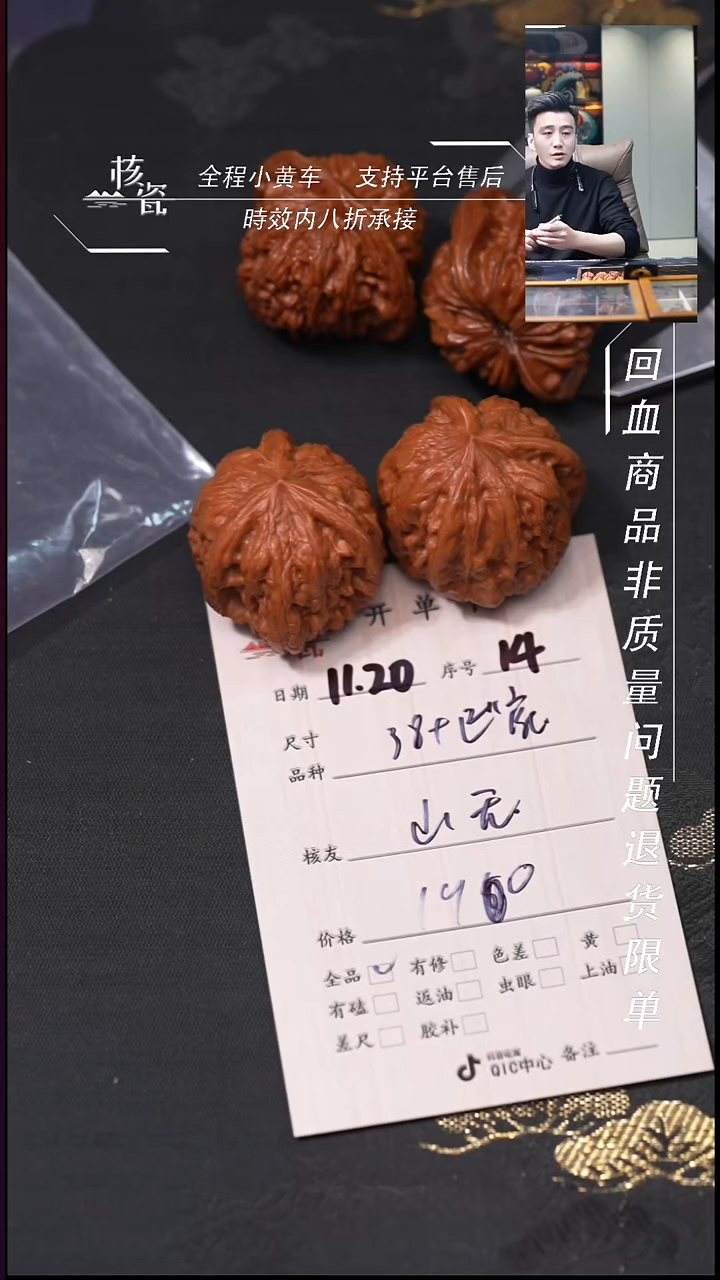 核瓷
全程小黄车 支持平台售后
時效内八折承接
回血商品非质量问题退货限单
开单
日期 11.20 序号 14
尺寸
品种 38+
核友 山无
价格
全品 有修 色差 黄
有磕 返油 虫眼 上油
差尺 胶补
QIC中心 备注